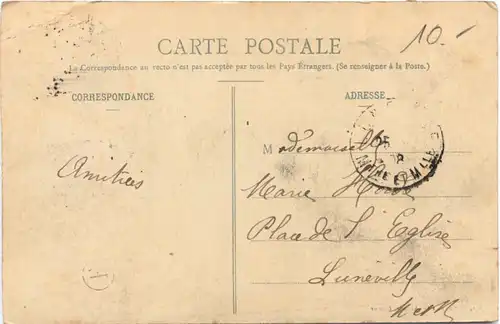 10.-
CARTE POSTALE
La Correspondance au recto n'est pas acceptée par tous les Pays Etrangers. (Se renseigner à la Poste.)
CORRESPONDANCE
ADRESSE
Amitiés
Mademoiselle
Marie
Place de l'Eglise
Lunéville
M et M